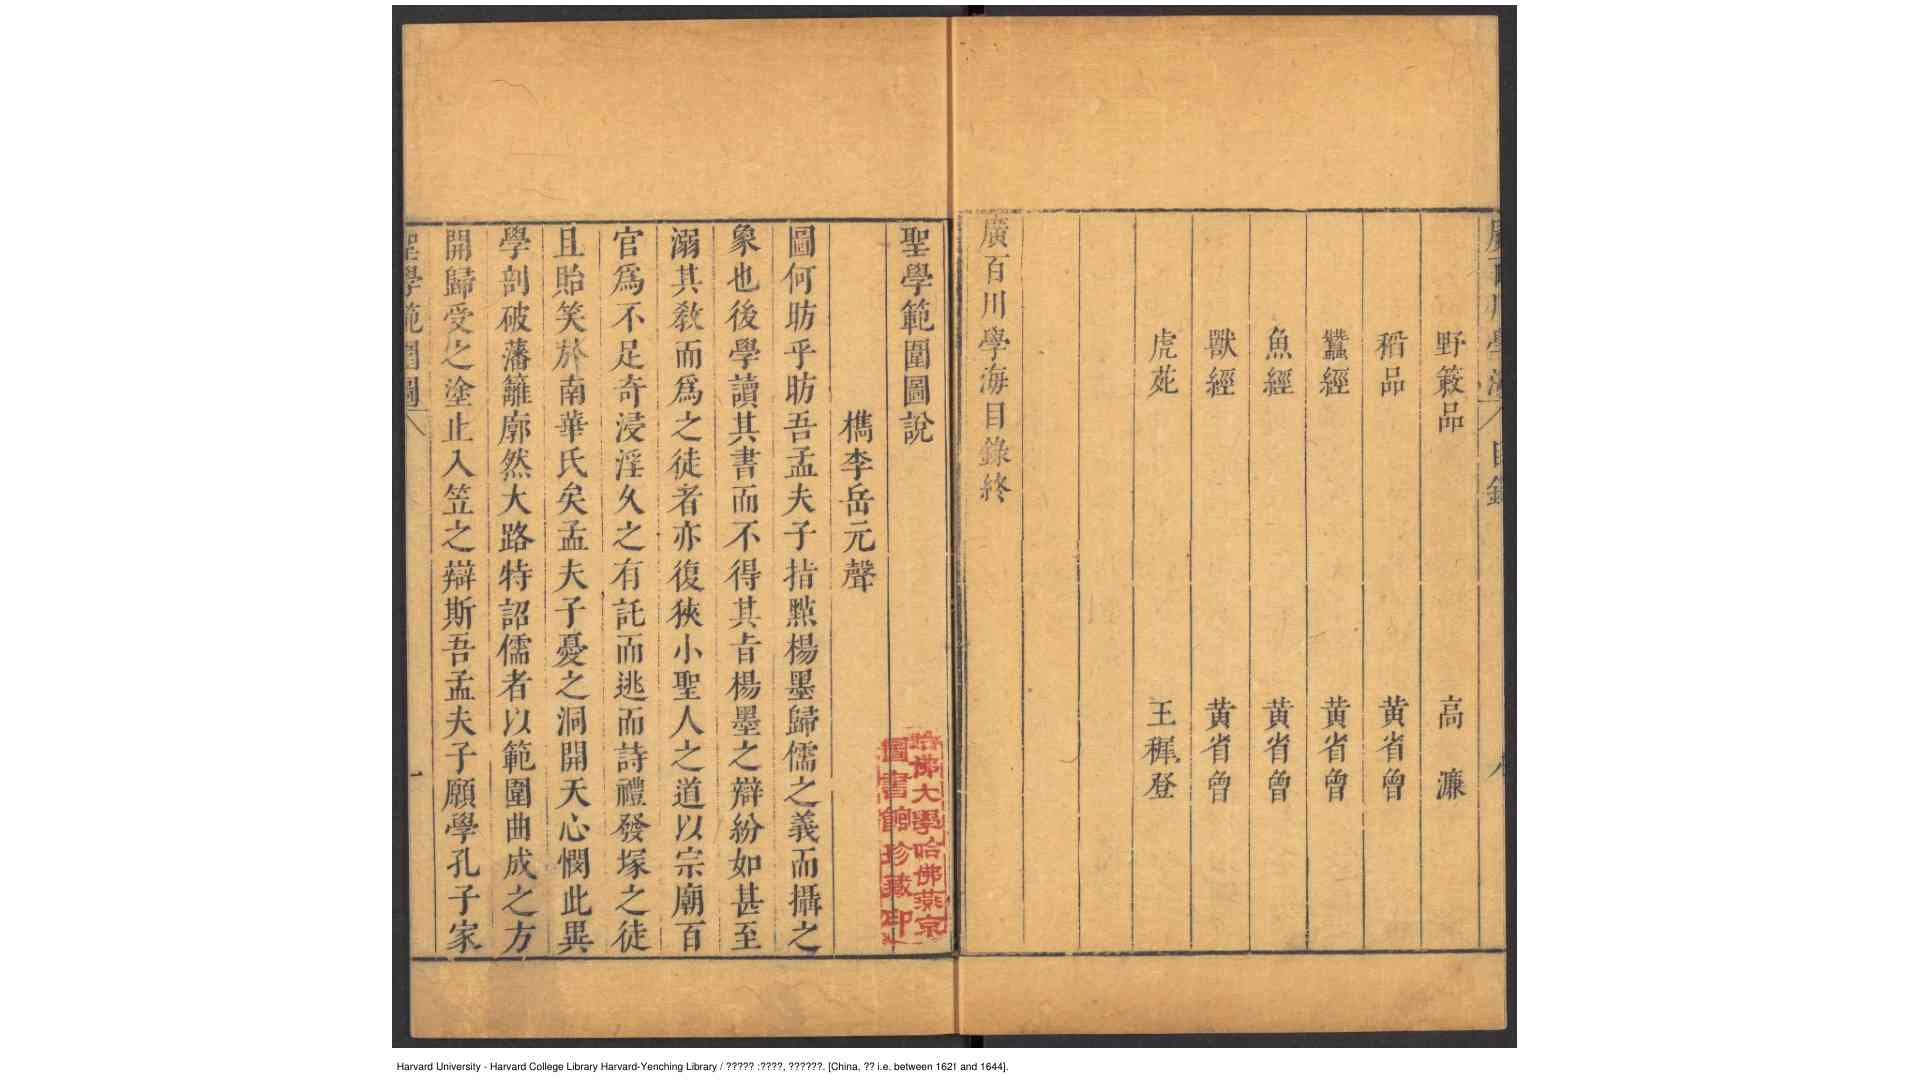 野蔌品　高濂
稻品　黃省曾
蠶經　黃省曾
魚經　黃省曾
獸經　黃省曾
虎苑　王穉登
廣百川學海目錄終
聖學範圍圖說
檇李岳元聲
圖何昉乎昉吾孟夫子指點楊墨歸儒之義而攝之
象也後學讀其書而不得其旨楊墨之辯紛如甚至
溺其敎而爲之徒者亦復狹小聖人之道以宗廟百
官爲不足奇浸淫久之有託而逃而詩禮發塚之徒
且貽笑於南華氏矣孟夫子憂之洞開天心憫此異
學剖破藩籬廓然大路特詔儒者以範圍曲成之方
開歸受之塗止入笠之辯斯吾孟夫子願學孔子家
聖學範圍圖
一
哈佛大學哈佛燕京
圖書館珍藏印
Harvard University - Harvard College Library Harvard-Yenching Library / ????? :????, ??????. [China, ?? i.e. between 1621 and 1644].